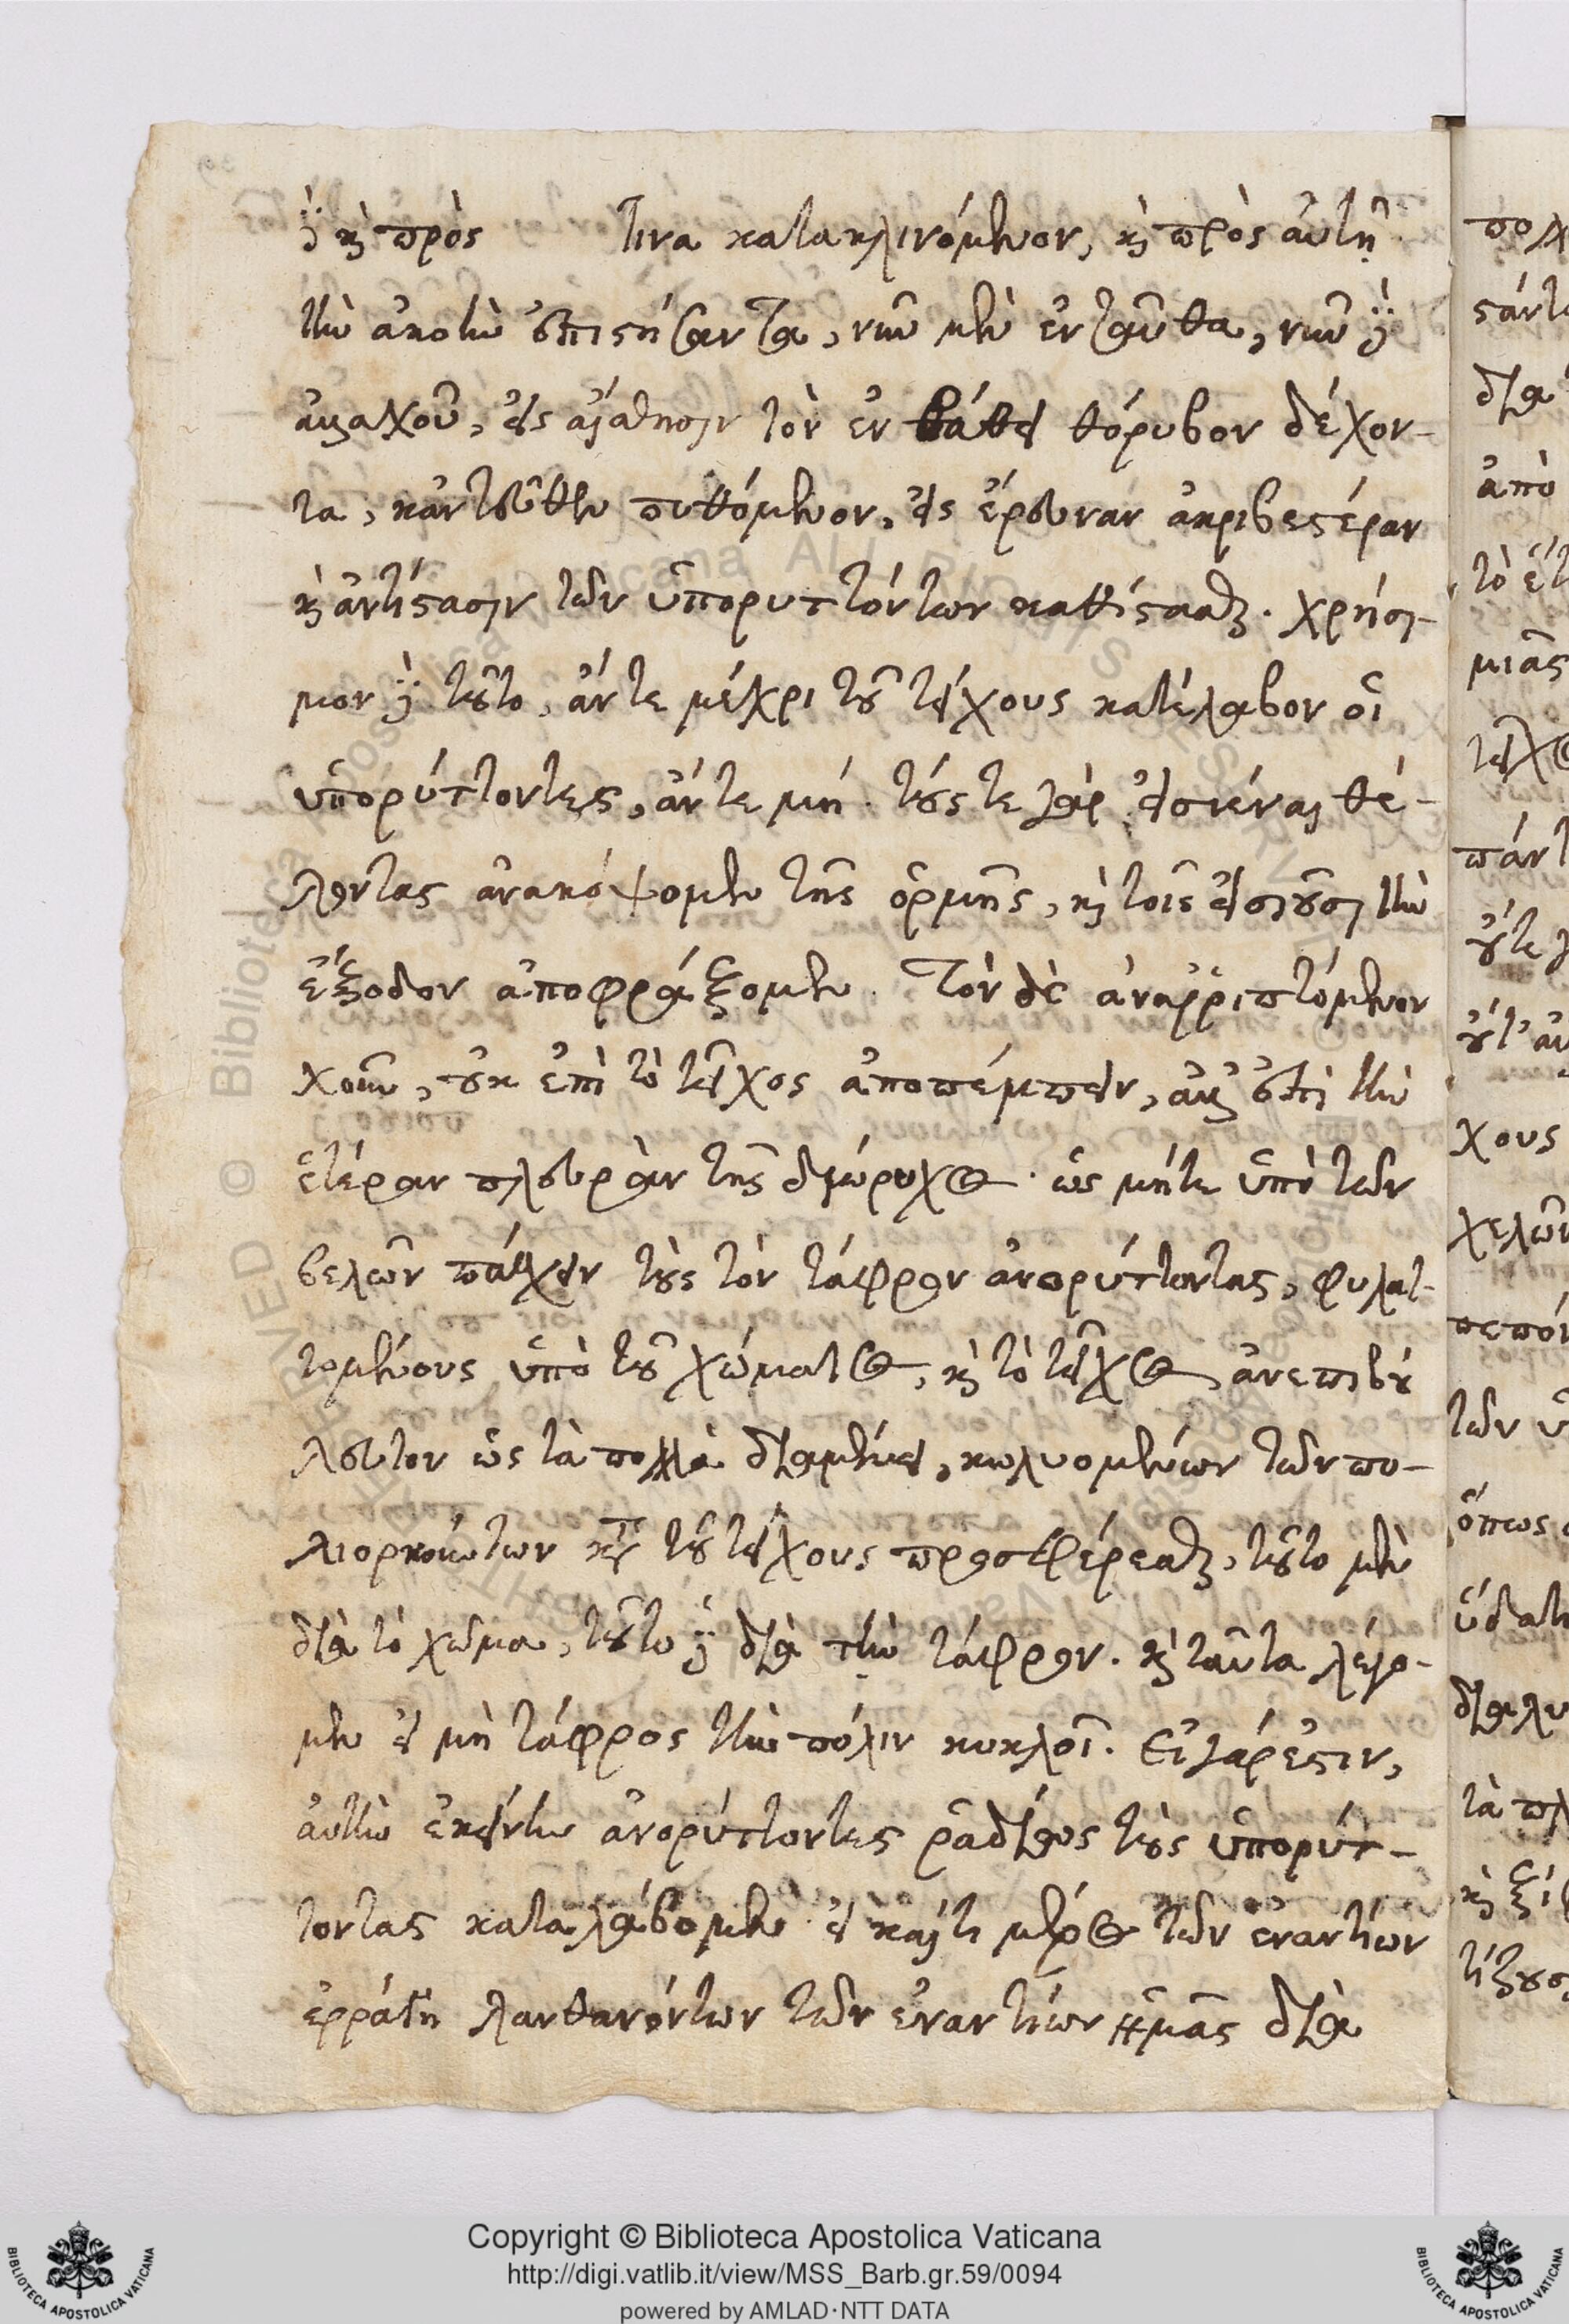 δὲ καὶ πρὸς τινα κατακλινόμενον, καὶ πρὸς αὐτῇ
τὴν ἀκοὴν ἐπιστήσαντα, νῦν μὲν ἐνταῦθα, νῦν δὲ
ἀλλαχοῦ, εἰς αἴσθησιν τὸν ἐν βάθει θόρυβον δέχον-
τα, κἀντεῦθεν πυθόμενον, εἰς ἔρευναν ἀκριβεστέραν
καὶ ἀντίστασιν τῶν ὑπορυττόντων καθίστασθαι. χρήσι-
μον δὲ τοῦτο, ἄν τε μέχρι τοῦ τείχους κατέλαβον οἱ
ὑπορύττοντες, ἄν τε μή. τούς τε γὰρ εἰσιέναι θέ-
λοντας ἀνακόψομεν τῆς ὁρμῆς, καὶ τοῖς εἰσιοῦσι τὴν
ἔξοδον ἀποφράξομεν. Τὸν δὲ ἀναρριπτόμενον
χοῦν, οὐκ ἐπὶ τὸ τεῖχος ἀποπέμπειν, ἀλλ' ἐπὶ τὴν
ἑτέραν πλευρὰν τῆς διώρυχος. ὡς μήτε ὑπὸ τῶν
βελῶν πάσχειν τοὺς τὸν τάφρον ἀνορύττοντας, φυλατ-
τομένους ὑπὸ τοῦ χώματος, καὶ τὸ τεῖχος ἀνεπιβού
λευτον ὡς τὰ πολλὰ διαμένει, κωλυομένων τῶν πο-
λιορκούντων κατὰ τοῦ τείχους προσφέρεσθαι, τοῦτο μὲν
διὰ τὸ χῶμα, τοῦτο δὲ διὰ τὴν τάφρον. καὶ ταῦτα λέγο-
μεν εἰ μὴ τάφρος τὴν πόλιν κυκλοῖ. Εἰ γάρ ἐστιν,
αὐτὴν ἐκείνην ἀνορύττοντες ῥαδίως τοὺς ὑπορύτ-
τοντας καταλάβομεν. εἰ καί τι μέρος τῶν ἐναντίων
ἐρράγη λανθανόντων τῶν ἐναντίων ἡμᾶς διὰ
Copyright © Biblioteca Apostolica Vaticana
http://digi.vatlib.it/view/MSS_Barb.gr.59/0094
powered by AMLAD·NTT DATA